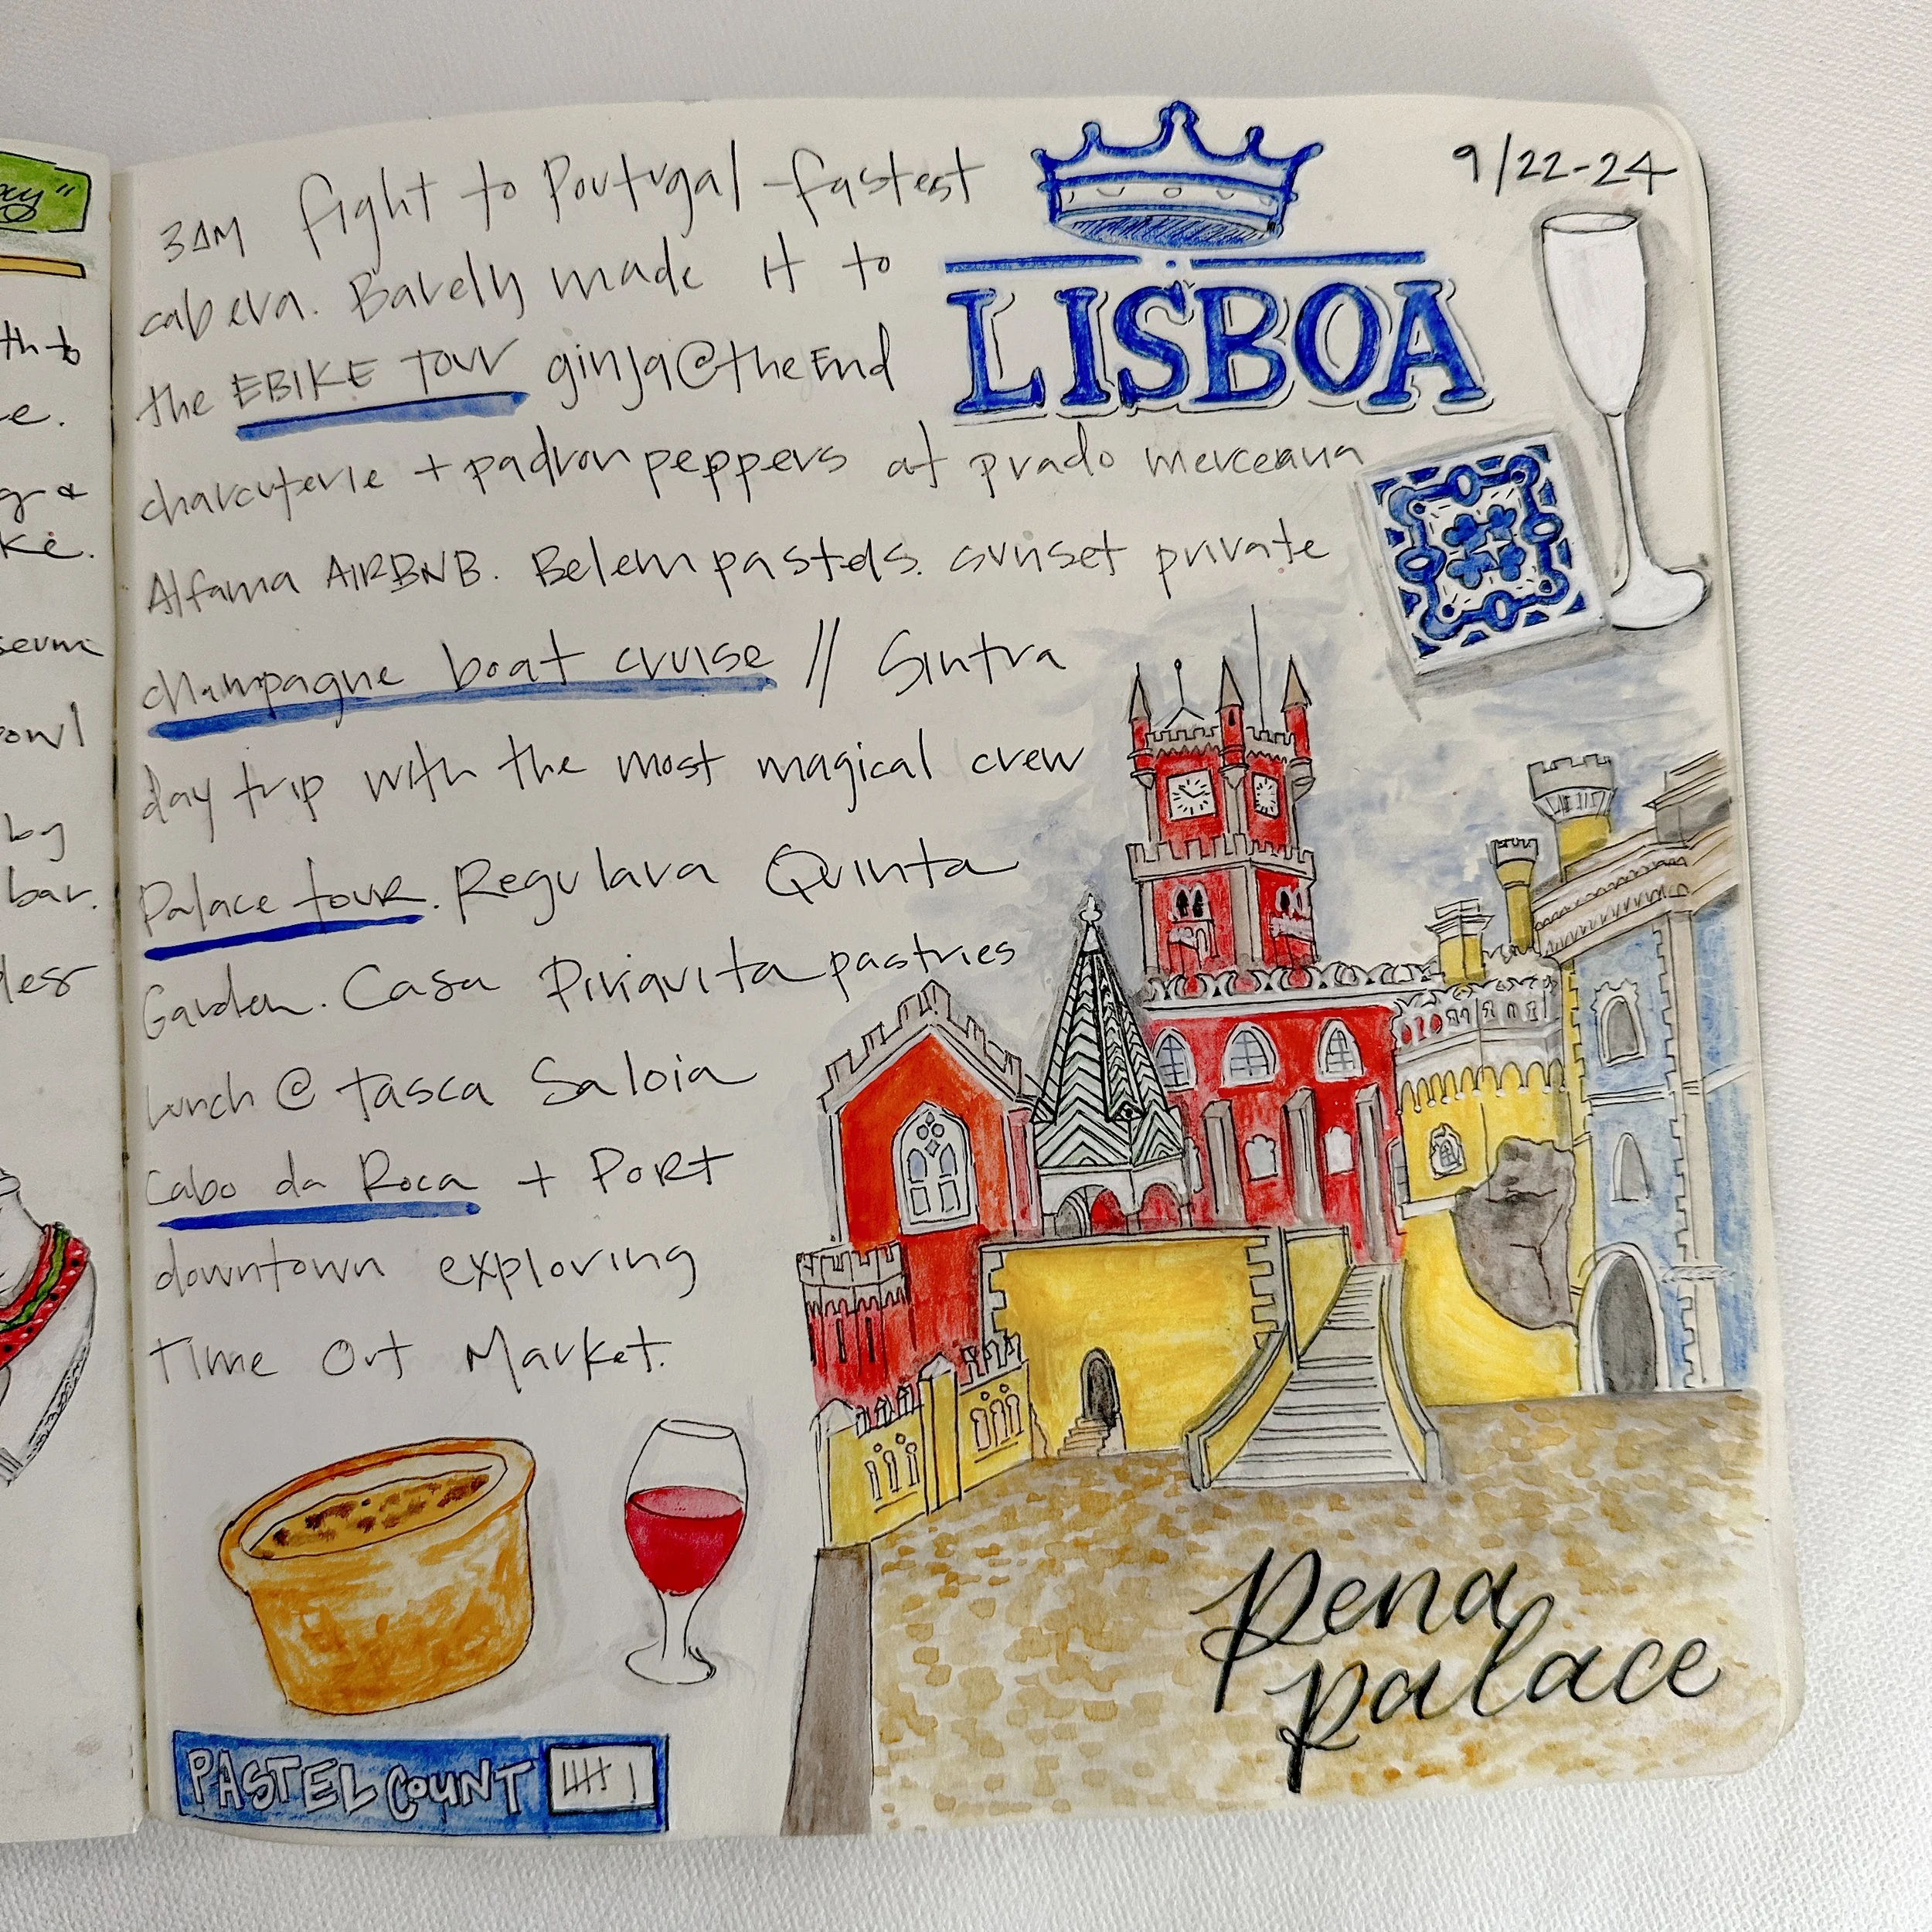 ay"
th to
e.
g &
ke.
seum
owl
by
bar.
les
3AM fight to Portugal - fastest
cab eva. Barely made it to
the EBIKE TOUR ginja@the End
charcuterie + padron peppers at prado merceana
Alfama AIRBNB. Belem pastels. sunset private
champagne boat cruise // Sintra
day trip with the most magical crew
Palace tour. Regulara Quinta
Garden. Casa Piriquita pastries
lunch @ tasca Saloia
Cabo da Roca + PORT
downtown exploring
Time Out Market.
PASTEL COUNT
LISBOA
9/22-24
pena
palace